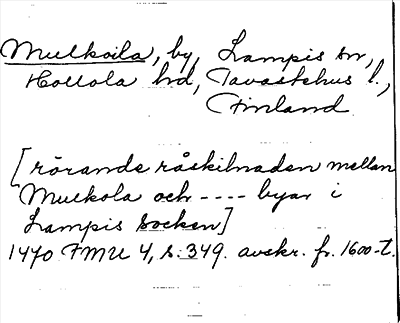 Mulkoila, by, Lampis sn,
Hollola hd, Tavastehus l.,
Finland
[rörande råskilnaden mellan
Mulkola och ---- byar i
Lampis socken]
1470 FMU 4, s. 349. avskr. fr. 1600-t.